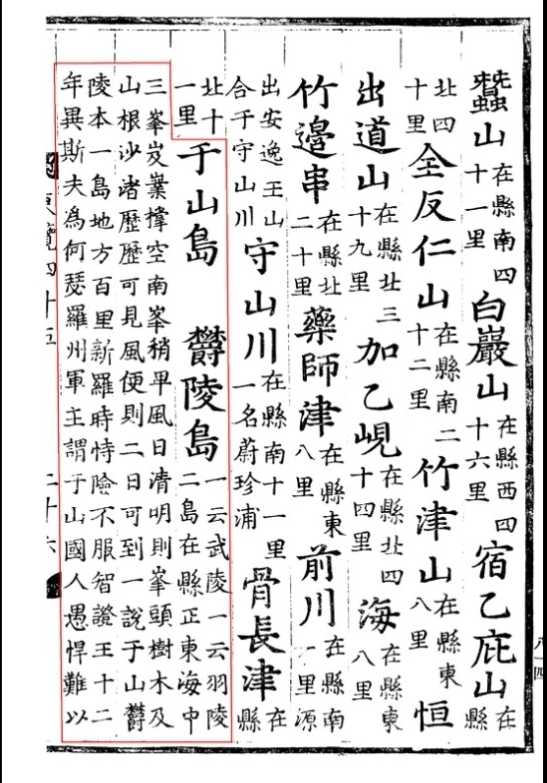 蠶山在縣南四十一里白巖山在縣西四十六里宿乙庇山在縣
北四十里全反仁山在縣南二十二里竹津山在縣東八里恒
出道山在縣北三十九里加乙峴在縣北四十四里海在縣東八里
竹邊串在縣北二十里藥師津在縣東八里前川在縣南一里源
出安逸王山合于守山川守山川在縣南十一里一名蔚珍浦骨長津在縣
北十一里于山島欝陵島一云武陵一云羽陵二島在縣正東海中
三峯岌嶪撑空南峯稍卑風日清明則峯頭樹木及
山根沙渚歷歷可見風便則二日可到一說于山欝
陵本一島地方百里新羅時恃險不服智證王十二
年異斯夫為何瑟羅州軍主謂于山國人愚悍難以
覽四十五
二十六